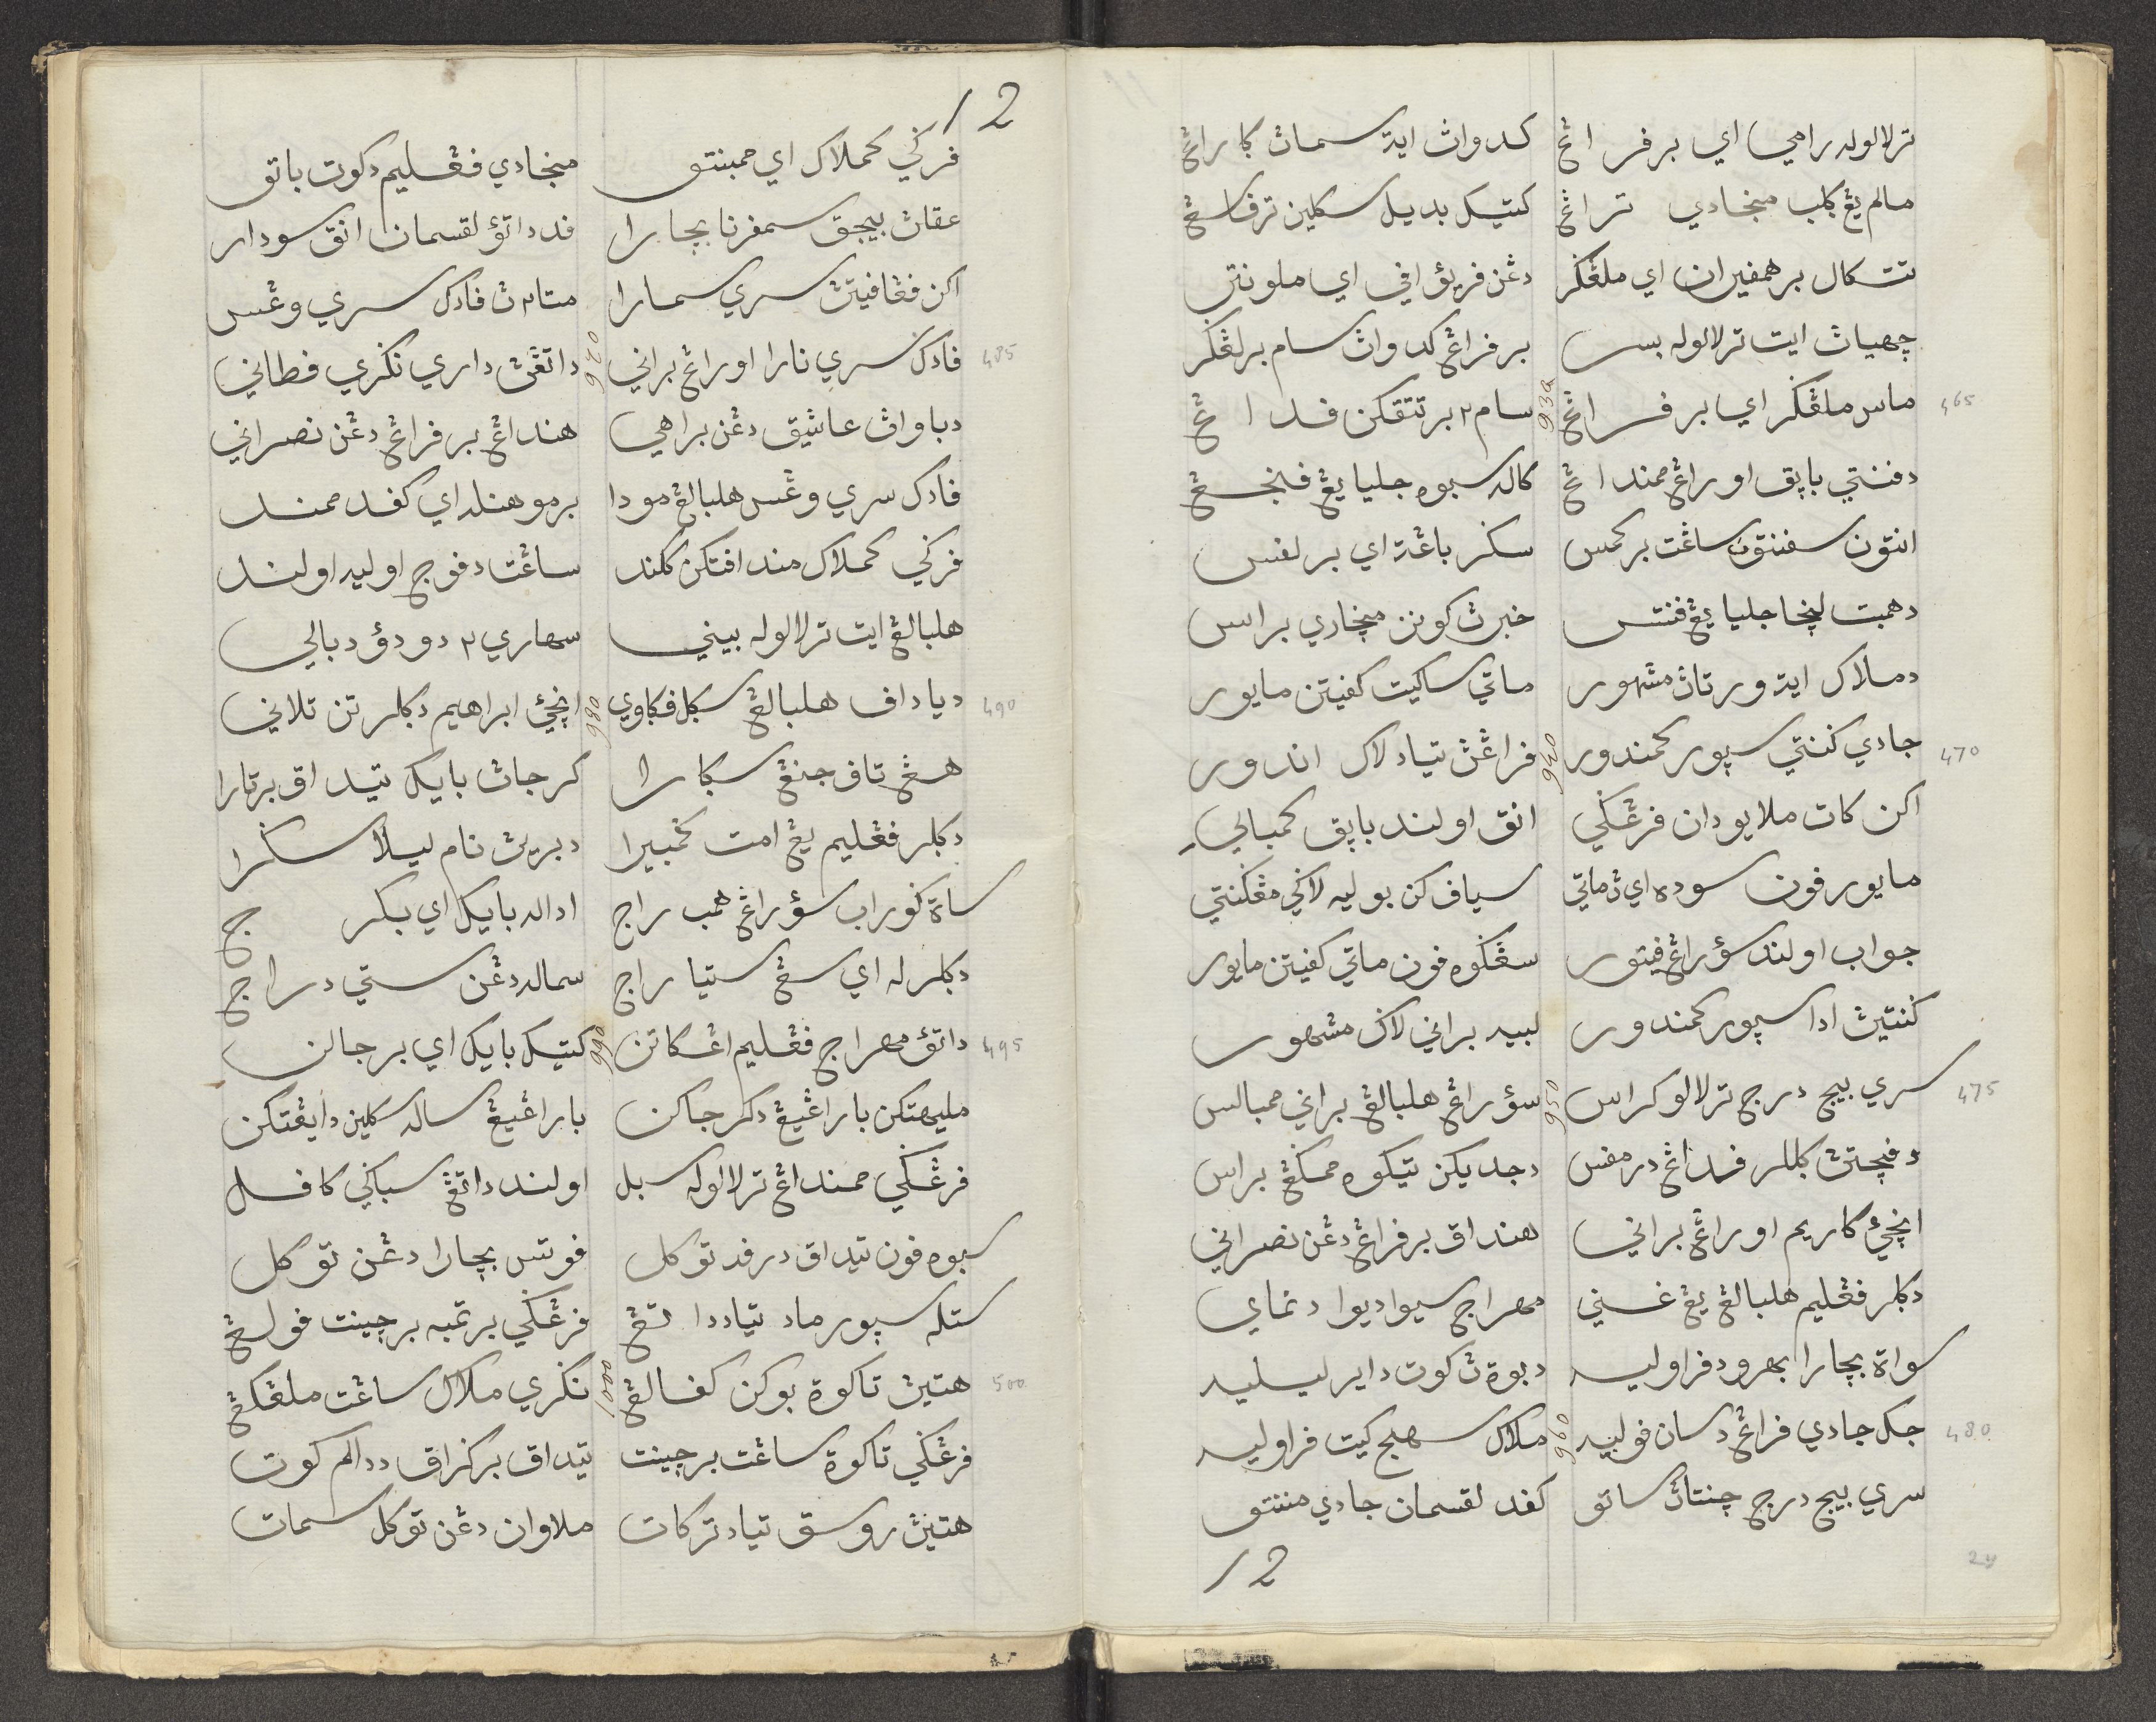 ترلالوله رامي اي برفراڠ كدواث ايت سمات ݢاراڠ
مالم يڠ ݢلب منجادي تراڠ كتيك بديل سكلين ترفاسڠ
تتكال برهمفيران اي ملڠݢر دڠن فريؤ افي اي ملونتر
چهيات ايت ترلالوله بسر برفراڠ كدواث سام برلڠݢر
465 ماس ملڠݢر اي برفراڠ 930 سام٢ برتتقكن فداڠ
دفنتي باپق اوراڠ ممنداڠ كاله سبوه جليا يڠ فنجڠ
انتون سفنتون ساڠت بركمس سكرباڠت اي برلفس
دهمبت لنچا جليا يڠ فنتس خبرث كونن منجادي براس
دملاك ايت ورتاث مشهور ماتي ساكيت كفيتن مايور
470 جادي كنتي سپور كمندور 940 فراڠث تياد لاك اندور
اكن كات ملايو دان فرڠݢي انق اولند باپق كمبالي
مايور فون سوده اي ث ماتي سياف كن بوليه لاݢي مڠݢنتي
جواب اولند سؤراڠ فيتور سڠݢوه فون ماتي كفيتن مايور
كنتيث ادا سپور كمندور لبيه براني لاݢ مشهور
475 سري بيج درج ترلالو كراس 950 سؤراڠ هلبالڠ براني ممبالس
دفچتث ݢللر فداڠ درمفس دجديكن تيݢوه ممݢڠ براس
انچئ كاريم اوراڠ براني هنداق برفراڠ دڠن نصراني
دݢلر فڠليم هلبالڠ يڠ غني مهراج سيوا ديوا دنماي
سوات بچارا بهرو دفراوليه دبوة ث كوت داير ليليه
480 جكل جادي فراڠ دسان فوليه 960 ملاك سهج كيت فراوليه
سري بيج درج چنتاث ساتو كفد لقسمان جادي مننتو
12
24
12
فرݢي كملاك اي ممبنتو منجادي فڠليم دكوت باتو
عقلث بيجق سمفرنا بچارا فد داتؤ لقسمان انق سودار
اكن فڠافيتث سري سمارا متاث فادك سري وڠس
485 فادك سري نارا اوراڠ براني 970 داتڠث داري نݢري فطاني
دباواث عاشيق دڠن براهي هنداڠ برفراڠ دڠن نصراني
فادك سري وڠس هلبالڠ مودا برموهنله اي كفد ممند
فرݢي كملاك مندافتكن كلند ساڠت دفوج اوليه اولند
هلبالڠ ايت ترلالوله بيني سهاري٢ دودؤ دبالي
490 دياداف هلبالڠ سݢل فݢاوي 980 انچئ ابراهيم دݢلر تن تلاني
هڠ تاف جنڠ سݢارا كرجاث بايك تيداق برتارا
دݢلر فڠليم يڠ امت ݢمبيرا دبريث نام ليلا سݢرا
ساة كوراب سؤراڠ همب راج اداله بايك اي بكرج
دݢلرله اي سڠ ستيا راج سماله دڠن ستي دراج
495 داتؤ مهراج فڠليم اڠكاتن 990 كتيك بايك اي برجالن
مليهتكن باراڠيڠ دكرجاكن باراڠيڠ ساله سكلين دايڠتكن
فرڠݢي ممنداڠ ترلالوله سبل اولند داتڠ سباݢي كافل
سبوه فون تيداق درفد توكل فوتس بچارا دڠن توكل
ستله سپور ماد تياد داتڠ فرڠݢي برتمبه برچينت فولڠ
500 هتيث تاكوة بوكن كفالڠ 1000 نݢري ملاك ساڠت ملڠكڠ
فرڠݢي تاكوة ساڠت برچينت تيداق برݢراق ددالم كوت
هتيث روسق تياد تركات ملاوان دڠن توكل سمات